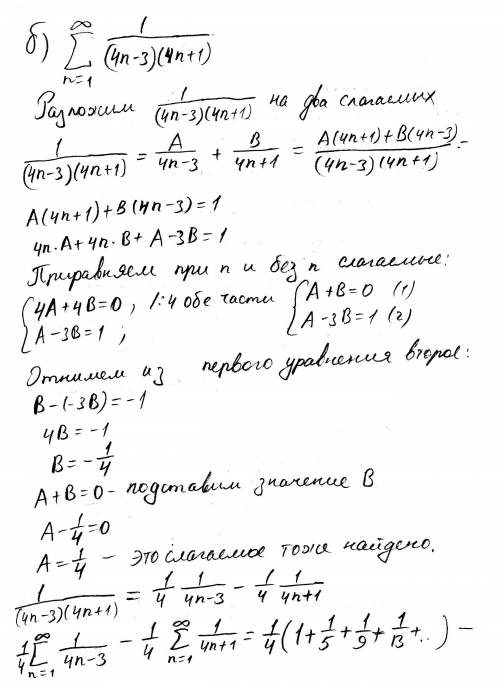 б) ∞∑n=1 1/((4n-3)(4n+1))
Разложим 1/((4n-3)(4n+1)) на два слагаемых
1/((4n-3)(4n+1)) = A/(4n-3) + B/(4n+1) = (A(4n+1)+B(4n-3))/((4n-3)(4n+1)) -
A(4n+1)+B(4n-3)=1
4n·A+4n·B+A-3B=1
Приравняем при n и без n слагаемые:
{4A+4B=0, /:4 обе части {A+B=0 (1)
{A-3B=1; {A-3B=1 (2)
Отнимем из первого уравнения второе:
B-(-3B)=-1
4B=-1
B=-1/4
A+B=0 - подставим значение B
A-1/4=0
A=1/4 - это слагаемое тоже найдено.
1/((4n-3)(4n+1)) = 1/4 1/(4n-3) - 1/4 1/(4n+1)
1/4 ∞∑n=1 1/(4n-3) - 1/4 ∞∑n=1 1/(4n+1) = 1/4(1+1/5+1/9+1/13+..) -